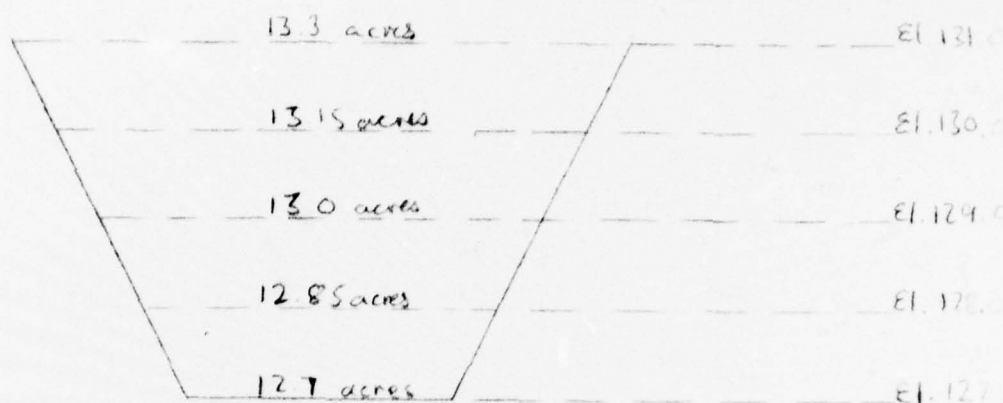 13.3 acres El. 131.0
13.15 acres El. 130.
13.0 acres El. 129.0
12.85 acres El. 128.0
12.7 acres El. 127